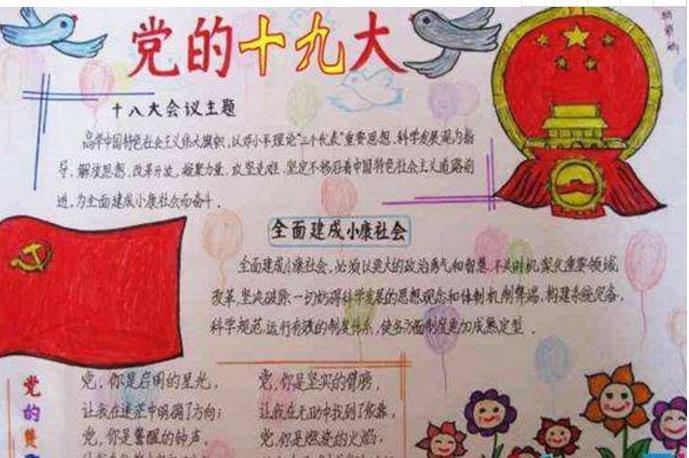 党的十九大
十八大会议主题
高举中国特色社会主义伟大旗帜,以邓小平理论"三个代表"重要思想、科学发展观为指
导,解放思想,改革开放,凝聚力量,攻坚克难,坚定不移沿着中国特色社会主义道路前
进,为全面建成小康社会而奋斗.
全面建成小康社会
全面建成小康社会,必须以更大的政治勇气和智慧,不失时机深化重要领域
改革,坚决破除一切妨碍科学发展的思想观念和体制机制弊端,构建系统完备,
科学规范,运行有效的制度体系,使各方面制度更加成熟定型.
党的
党,你是启明的星光,
让我在迷茫中明确了方向;
党,你是警醒的钟声,
党,你是坚实的臂膀,
让我在无助中找到了依靠,
党,你是燃烧的火焰,